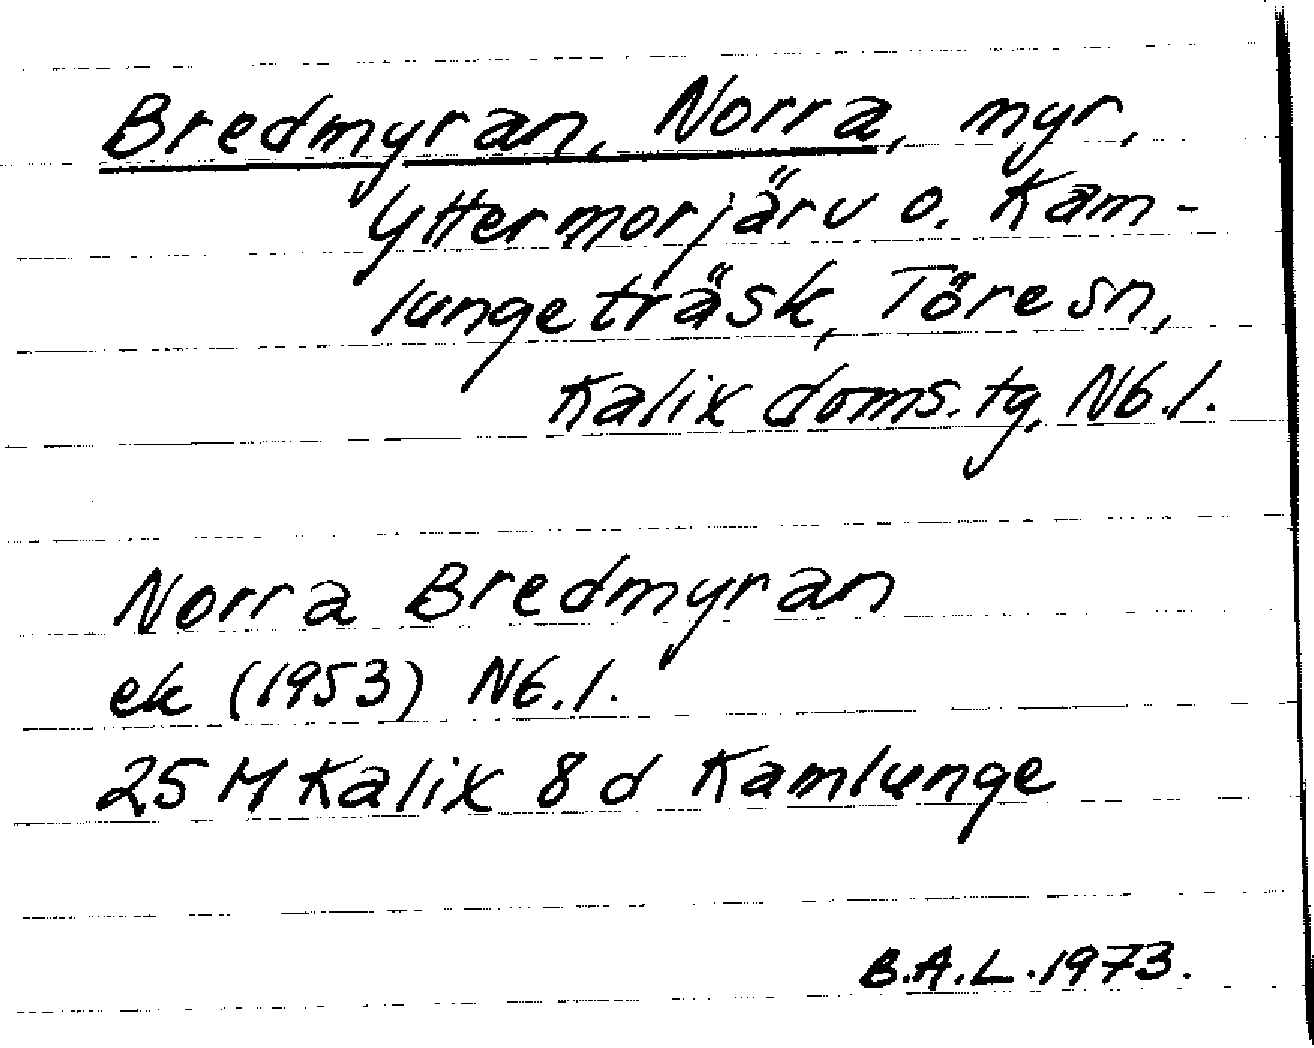 Bredmyran, Norra, myr,
Yttermorjärv o. Kam-
lungeträsk, Töre sn,
Kalix doms. tg, Nb. l.
Norra Bredmyran
ek (1953) Nb. l.
25 M Kalix 8 d Kamlunge
B.A.L. 1973.